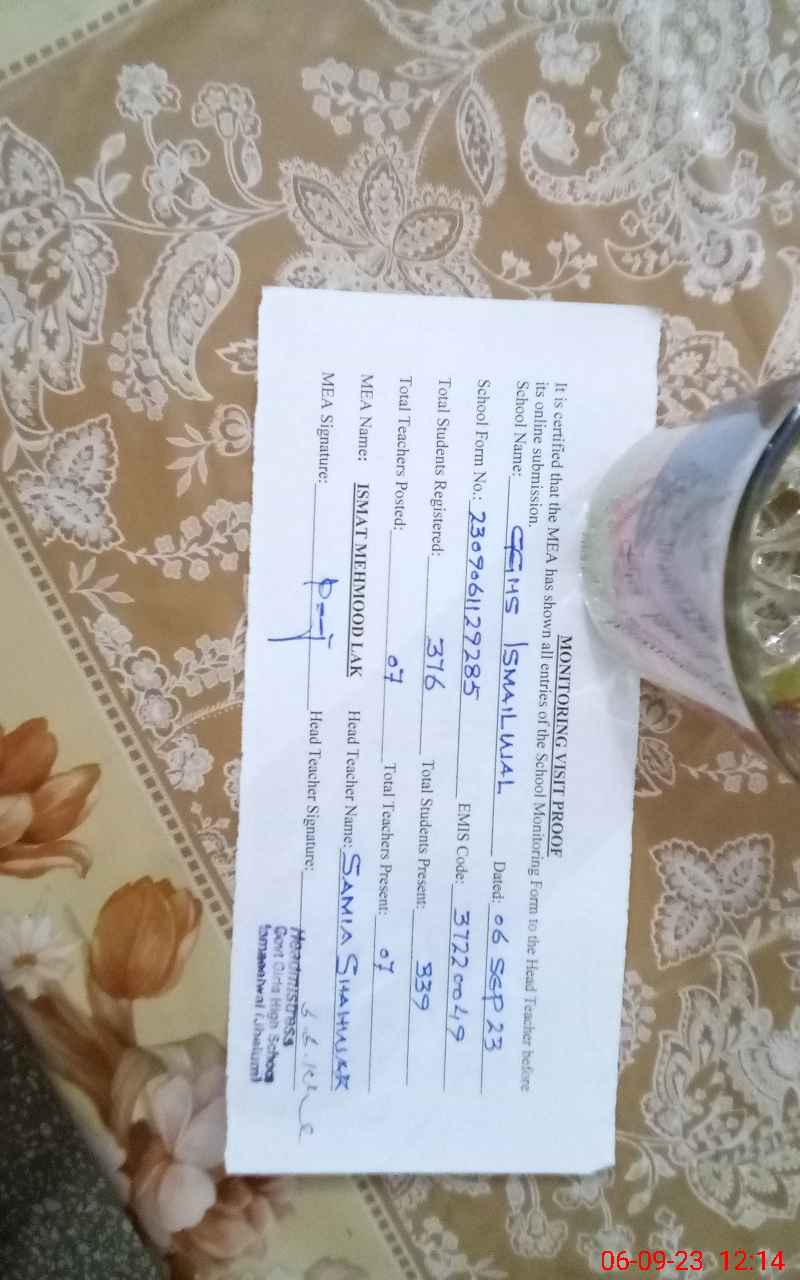 MONITORING VISIT PROOF
It is certified that the MEA has shown all entries of the School Monitoring Form to the Head Teacher before
its online submission.
School Name: GGHS ISMAILWAL Dated: 06 SEP 23
School Form No.: 2309061129285 EMIS Code: 37220049
Total Students Registered: 376 Total Students Present: 339
Total Teachers Posted: 07 Total Teachers Present: 07
MEA Name: ISMAT MEHMOOD LAK Head Teacher Name: SAMIA
MEA Signature: Head Teacher Signature:
Headmistress
Govt Girls High School
(Jhelum)
06-09-23 12:14